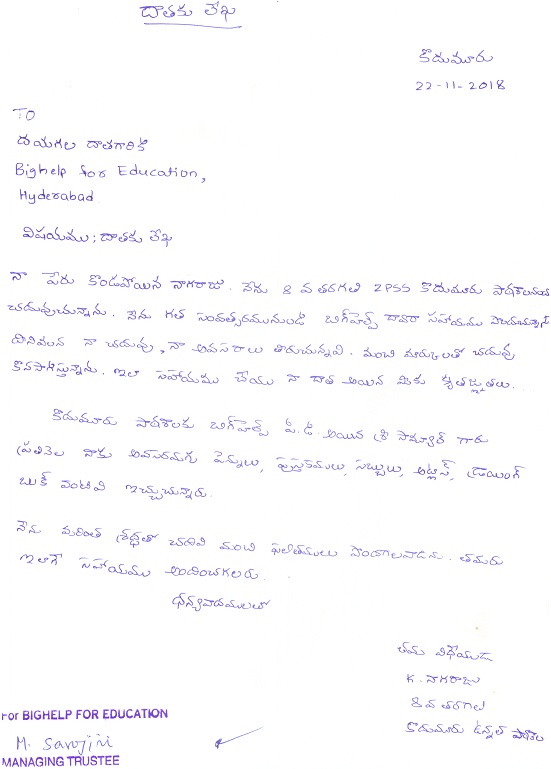 దాతకు లేఖ
కొడుమూరు
22-11-2018
TO
దయగల దాతగారికి
Bighelp for Education,
Hyderabad
విషయము ; దాతకు లేఖ
నా పేరు కొండపోయిన నాగరాజు. నేను 8 వ తరగతి ZPSS కొడుమూరు పాఠశాలయందు
చదువుచున్నాను. నేను గత సంవత్సరమునుండి బిగ్‌హెల్ప్ ద్వారా సహాయము పొందుచున్నాను
దీనివలన నా చదువు, నా అవసరాలు తీరుచున్నవి. మంచి మార్కులతో చదువు
కొనసాగిస్తున్నాను. ఇలా సహాయము చేయు నా దాత అయిన మీకు కృతజ్ఞతలు.
కొడుమూరు పాఠశాలకు బిగ్‌హెల్ప్ పి.డి అయిన శ్రీ గారు
ప్రతినెల నాకు అవసరమగు పెన్నులు, పుస్తకములు, సబ్బులు, అట్లాస్, డ్రాయింగ్
బుక్ వంటివి ఇచ్చుచున్నారు.
నేను మరింత శ్రద్ధతో చదివి మంచి ఫలితములు పొందగలవాడను. తమరు
ఇలాగే సహాయము అందించగలరు.
ధన్యవాదములతో
తమ విధేయుడు
K. నాగరాజు
8 వ తరగతి
కొడుమూరు ఉన్నత పాఠశాల
For BIGHELP FOR EDUCATION
M. Sarojini
MANAGING TRUSTEE